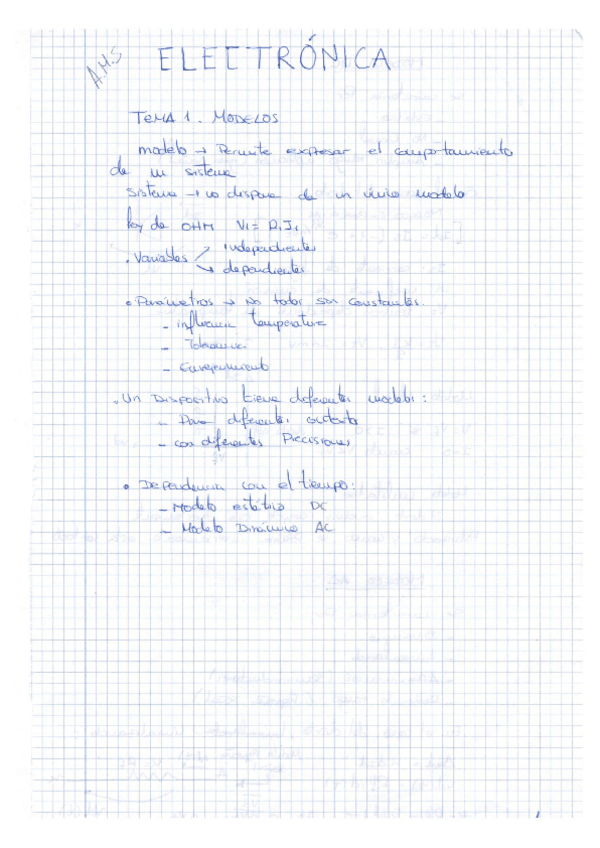 A.M.S
ELECTRÓNICA
TEMA 1. MODELOS
modelo → Permite expresar el comportamiento
de un sistema
Sistema → no dispone de un único modelo
ley de OHM V₁= R₁I₁
• Variables ↗ independientes
↘ dependientes
• Parámetros → No todos son constantes.
- influencia temperatura
- Tolerancia
- Envejecimiento
• Un Dispositivo tiene diferentes modelos:
- Para diferentes
- con diferentes Precisiones
• Dependencia con el tiempo:
- Modelo estático DC
- Modelo Dinámico AC